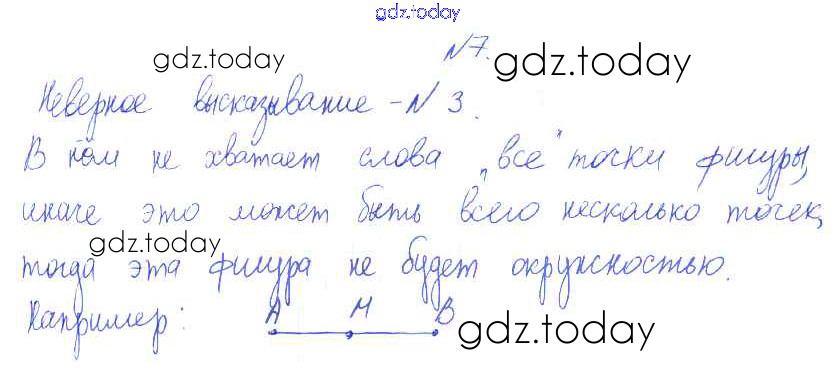 gdz.today
№7. gdz.today
gdz.today
Неверное высказывание - № 3.
В нём не хватает слова „все" точки фигуры,
иначе это может быть всего несколько точек,
gdz.today
тогда эта фигура не будет окружностью.
Например: А М В
gdz.today